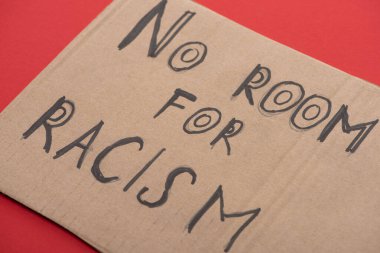 No ROOM
FOR
RACISM